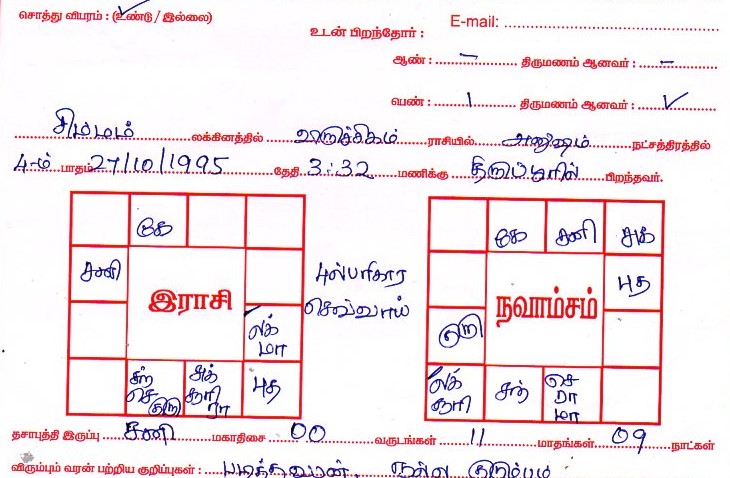 சொத்து விபரம் : (உண்டு / இல்லை)
E-mail:
உடன் பிறந்தோர் :
ஆண் : – திருமணம் ஆனவர் : –
பெண் : 1 திருமணம் ஆனவர் : ✓
சிம்மம் லக்கினத்தில் விருச்சிகம் ராசியில் அனுஷம் நட்சத்திரத்தில்
4-ம் பாதம் 27/10/1995 தேதி 3:32 மணிக்கு திருப்பூரில் பிறந்தவர்.
கே
கே சனி சுக்
சனி
புத
பரிகார
செவ்வாய்
இராசி
நவாம்சம்
லக்
மா
குரு
சந்
செ
குரு
சுக்
சூரி
ரா
புத
லக்
சூரி
சந்
செ
ரா
மா
தசாபுத்தி இருப்பு சனி மகாதிசை 00 வருடங்கள் 11 மாதங்கள் 09 நாட்கள்
விரும்பும் வரன் பற்றிய குறிப்புகள் : படித்தவமன், நல்ல குடும்பம்